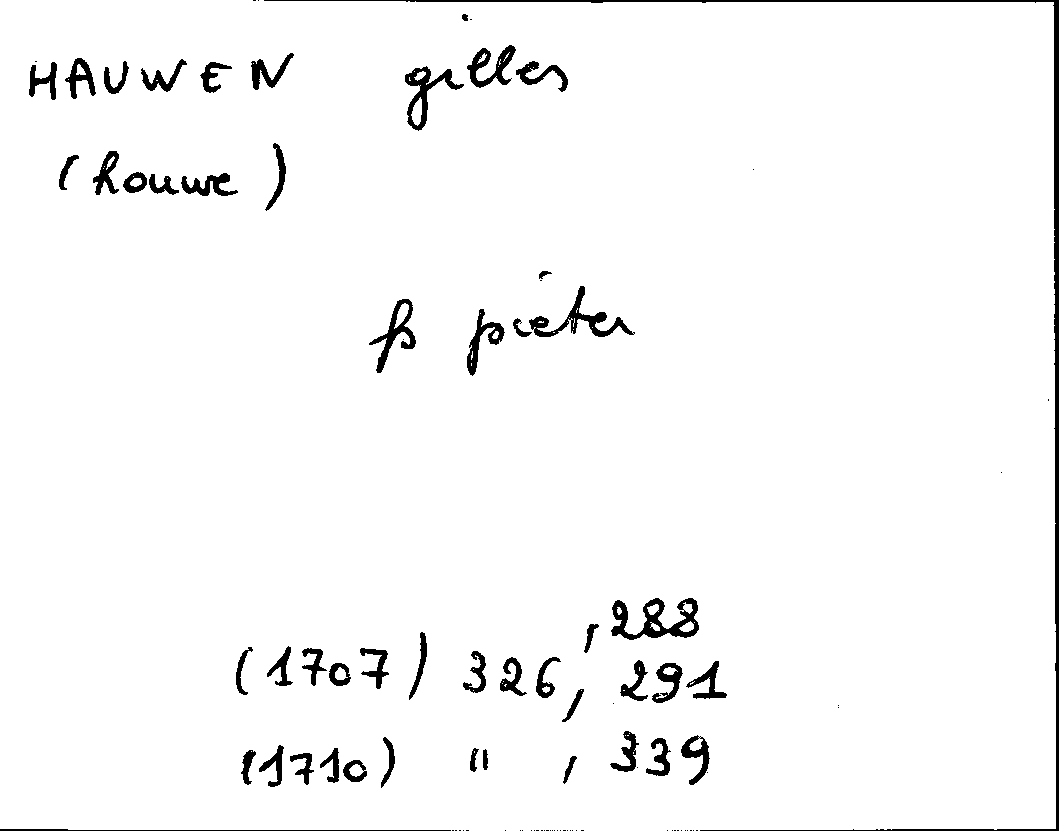 HAUWEN gilles
(houwe)
fs pieter
, 288
(1707) 326, 291
(1710) " , 339